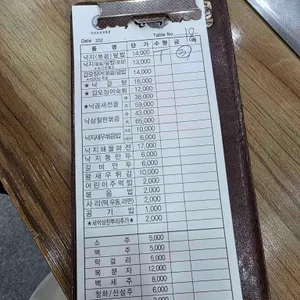 Date 202
Table No 10
품 명 단 가 수 량 금 액
낙지(볶음)덮밥 14,000 1
13,000
갑오징어(볶음)덮밥 14,000
16,000
★갑오징어숙회 12,000
38,000
★낙곱새전골 59,000
43,000
낙삼철판볶음 65,000
10,000
낙지새우볶음밥 8,000
2,000
낙지해물파전 17,000
낙지통만두 6,000
갈비만두 6,000
왕새우튀김 10,000
어린이주먹밥 2,000
볶음밥 2,000
사리(떡,우동,라면) 2,000
공기밥 1,000
2,000
소주 5,000
맥주 5,000
막걸리 5,000
복분자 12,000
백세주 8,000
청하/산심주 6,000
2,000